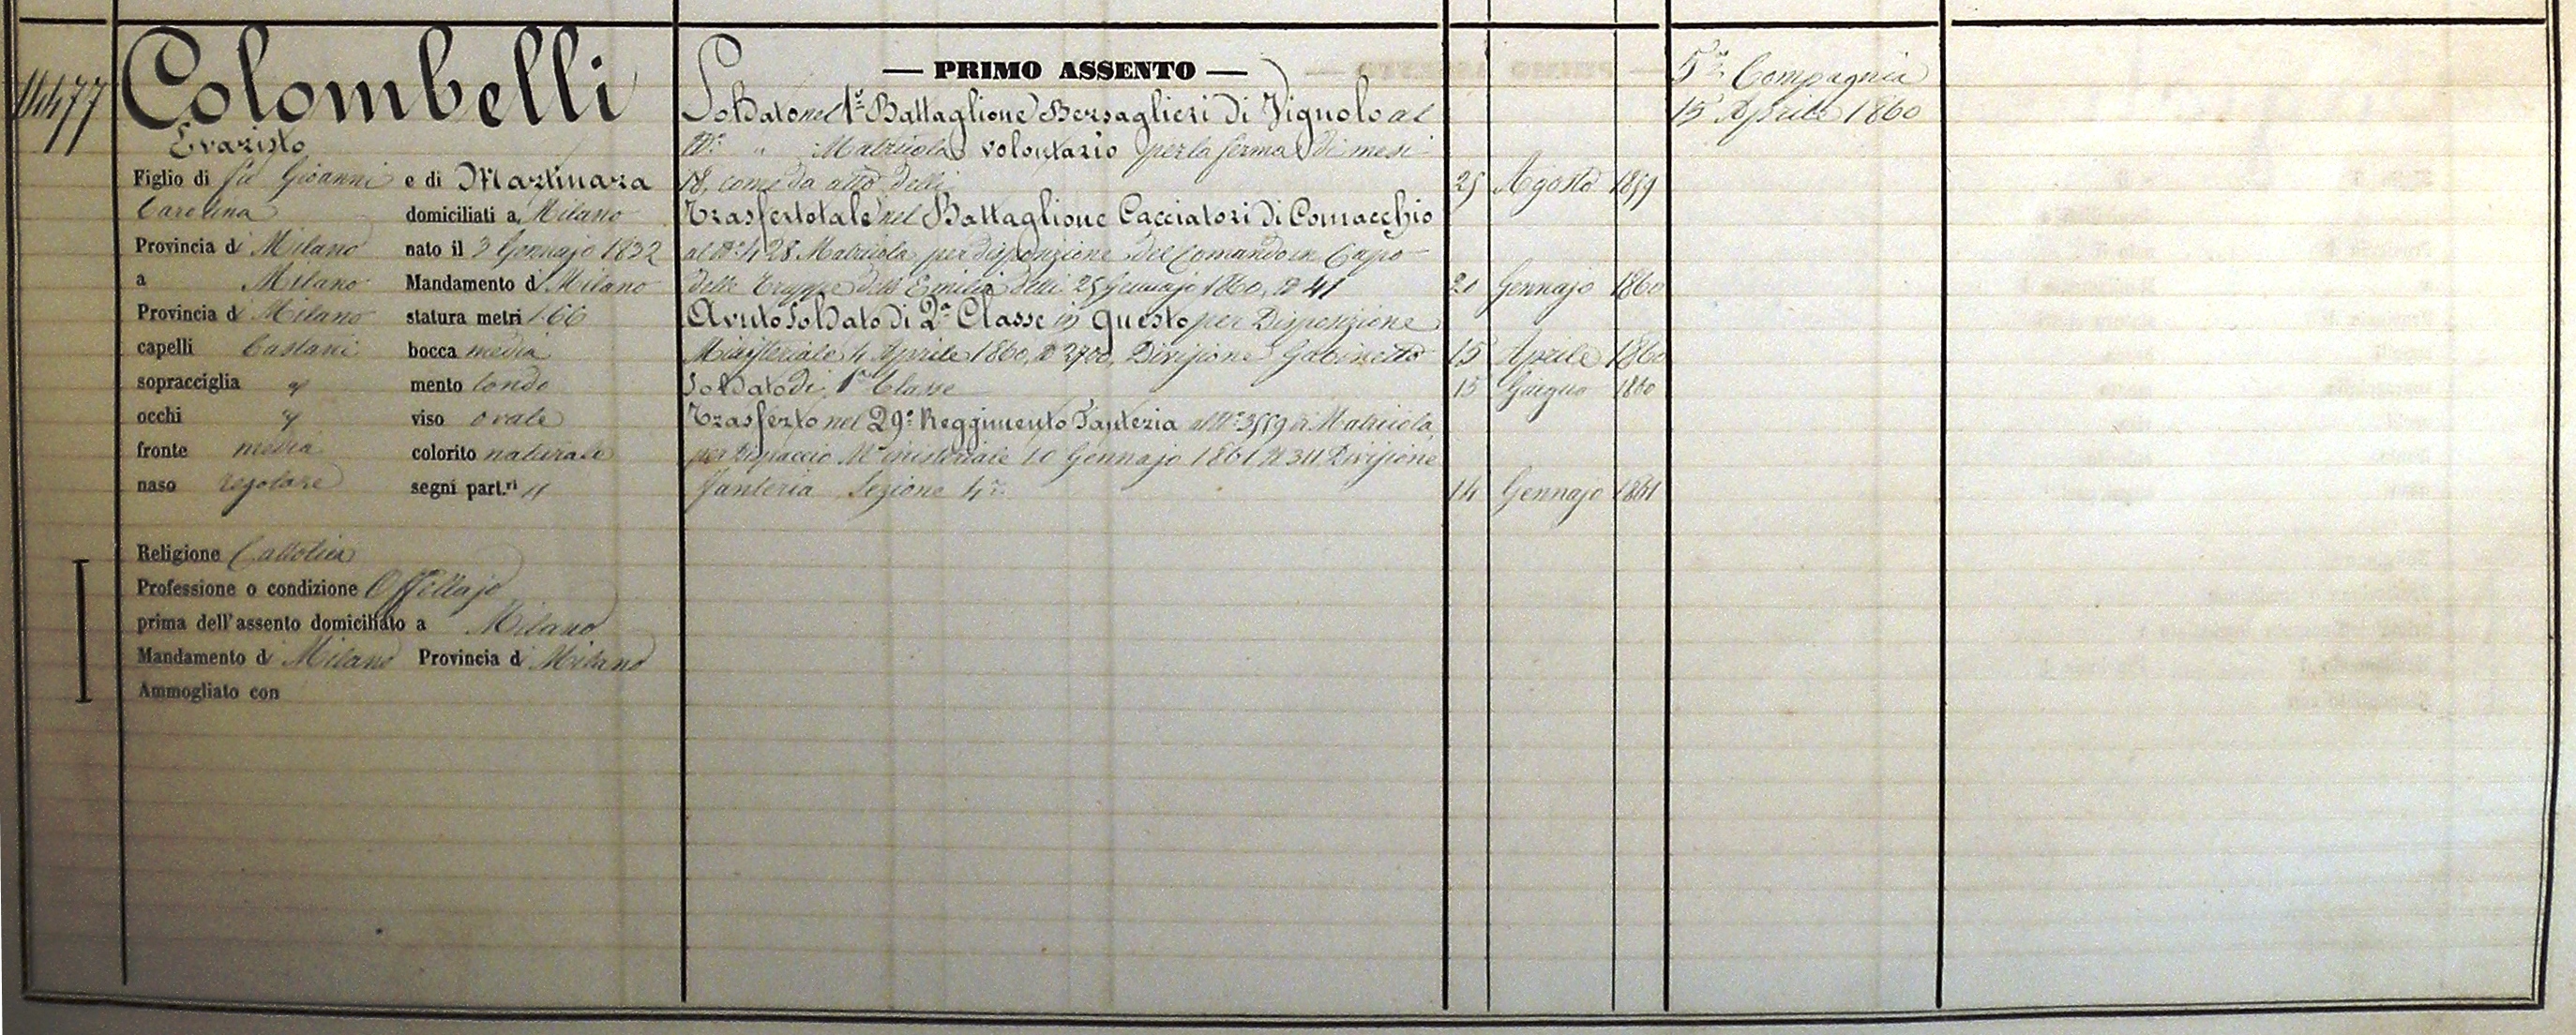 4477
Colombelli
Evaristo
Figlio di fu Gioanni e di Martinara
Carolina domiciliati a Milano
Provincia di Milano nato il 3 Gennajo 1832
a Milano Mandamento di Milano
Provincia di Milano statura metri 1.66
capelli Castani bocca media
sopracciglia " mento tondo
occhi " viso ovale
fronte media colorito naturale
naso regolare segni part.ri "
Religione Cattolica
Professione o condizione Offellajo
prima dell'assento domiciliato a Milano
Mandamento di Milano Provincia di Milano
Ammogliato con
— PRIMO ASSENTO —
Soldato nel 1º Battaglione Bersaglieri di Vignolo al
Nº " Matricola volontario per la ferma di mesi
18, come da atto delli 25 Agosto 1859
Trasferto tale nel Battaglione Cacciatori di Comacchio
al Nº 428 Matricola per disposizione del Comando in Capo
delle Truppe dell'Emilia delli 25 Gennajo 1860, Nº 41 20 Gennajo 1860
Avuto Soldato di 2ª Classe in questo per Disposizione
Ministeriale 4 Aprile 1860, Nº 2700, Divisione Gabinetto 15 Aprile 1860
Soldato di 1ª Classe 15 Giugno 1860
Trasferto nel 29º Reggimento Fanteria al Nº 3559 di Matricola
per Dispaccio Ministeriale 10 Gennajo 1861 Nº 311 Divisione
Fanteria Sezione 4ª 14 Gennajo 1861
5ª Compagnia
15 Aprile 1860